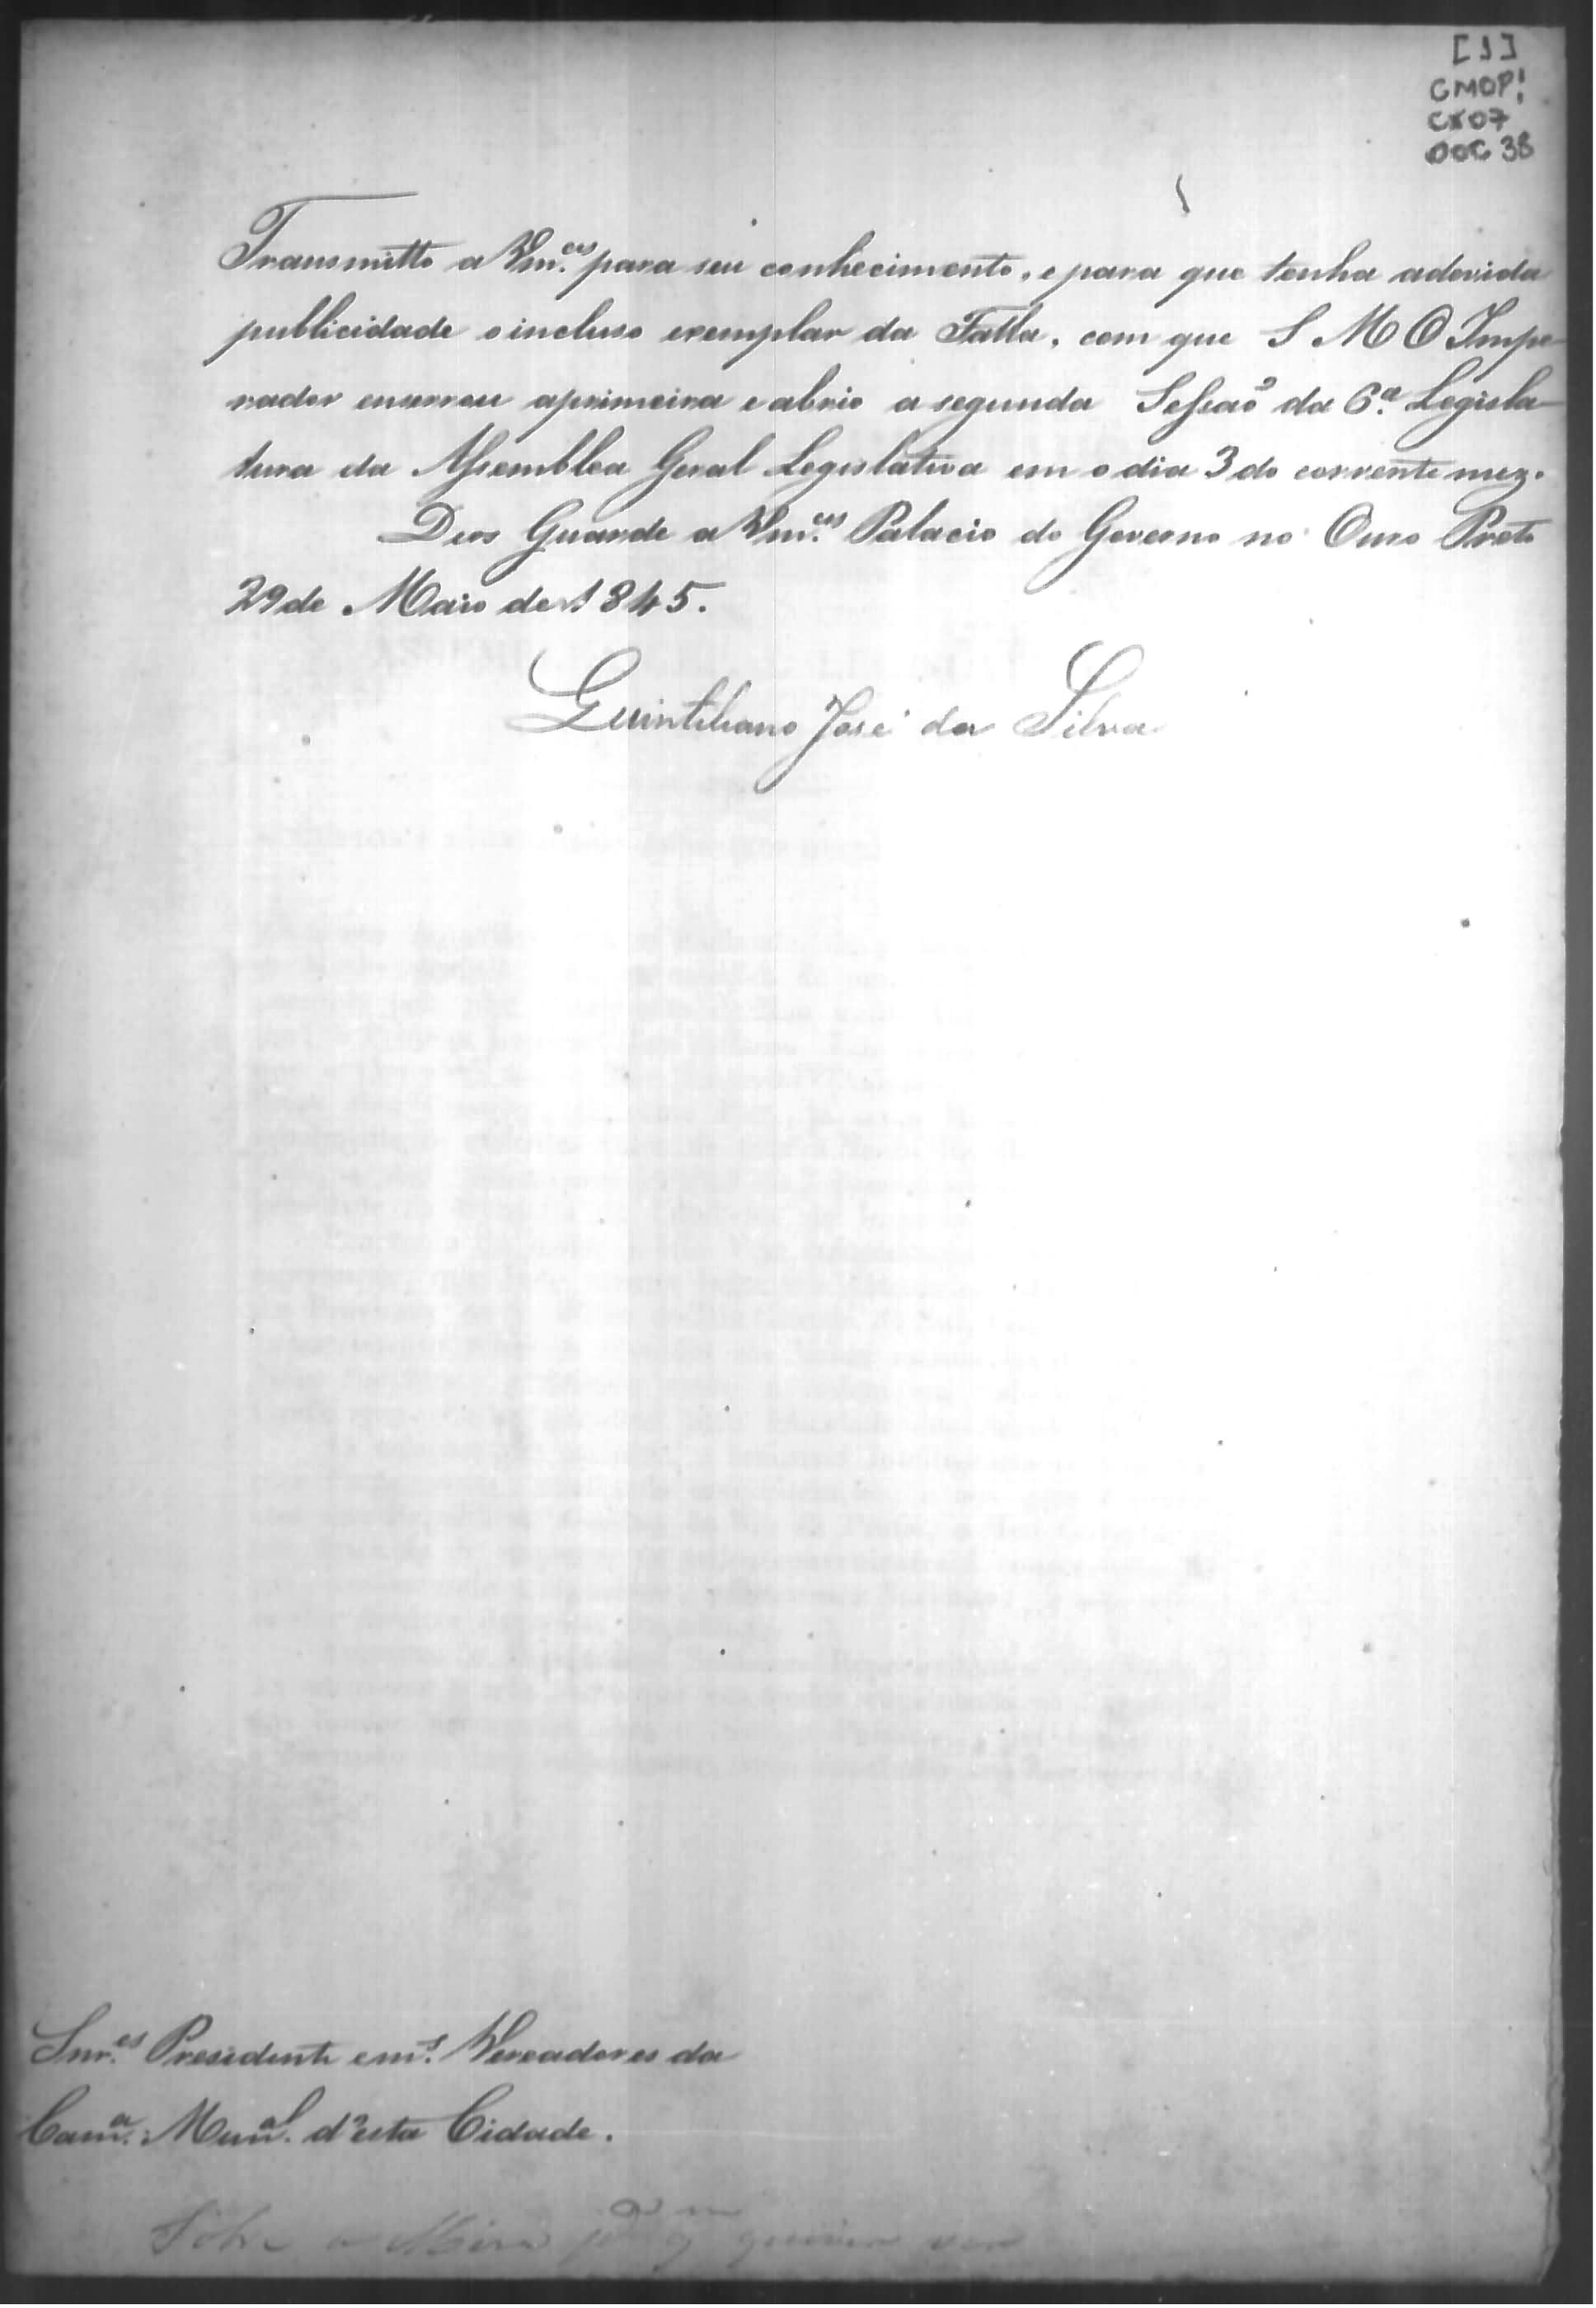 [1]
CMOP:
CX07
DOC 38
Transmitto a Vm.ces para seu conhecimento, e para que tenha adevida
publicidade oincluso exemplar da Falla, com que S M O Impe-
rador encerrou aprimeira e abrio a segunda Sessaõ da 6.a Legisla-
tura da Assemblea Geral Legislativa em o dia 3 do corrente mez.
Deos Guarde a Vm.ces Palacio do Governo no Ouro Preto
29 de Maio de 1845.
Quintiliano José da Silva
Snr.es Presidente em.s Vereadores da
Cam.a Mun.al d'esta Cidade.
Sobre a Meza p.a q